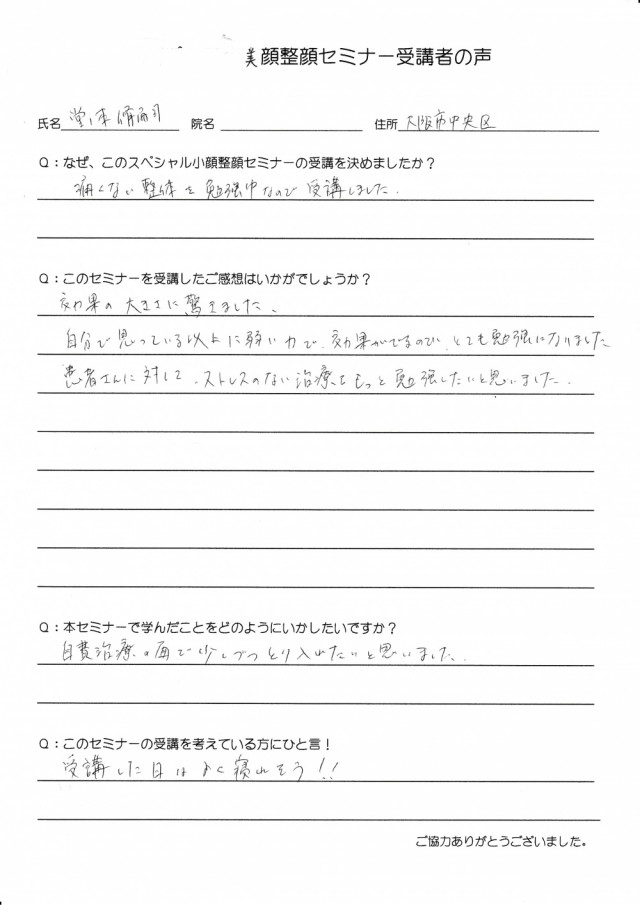 美顔整顔セミナー受講者の声
氏名 堂本 院名 住所 大阪市中央区
Q：なぜ、このスペシャル小顔整顔セミナーの受講を決めましたか？
痛くない整体を勉強中なので受講しました.
Q：このセミナーを受講したご感想はいかがでしょうか？
効果の大きさに驚きました、
自分で思っている以上に弱い力で、効果がでるので、とても勉強になりました
患者さんに対して、ストレスのない治療をもっと勉強したいと思いました.
Q：本セミナーで学んだことをどのようにいかしたいですか？
自費治療の面で少しづつとり入れたいと思いました.
Q：このセミナーの受講を考えている方にひと言！
受講した日はよく寝れそう!!
ご協力ありがとうございました。